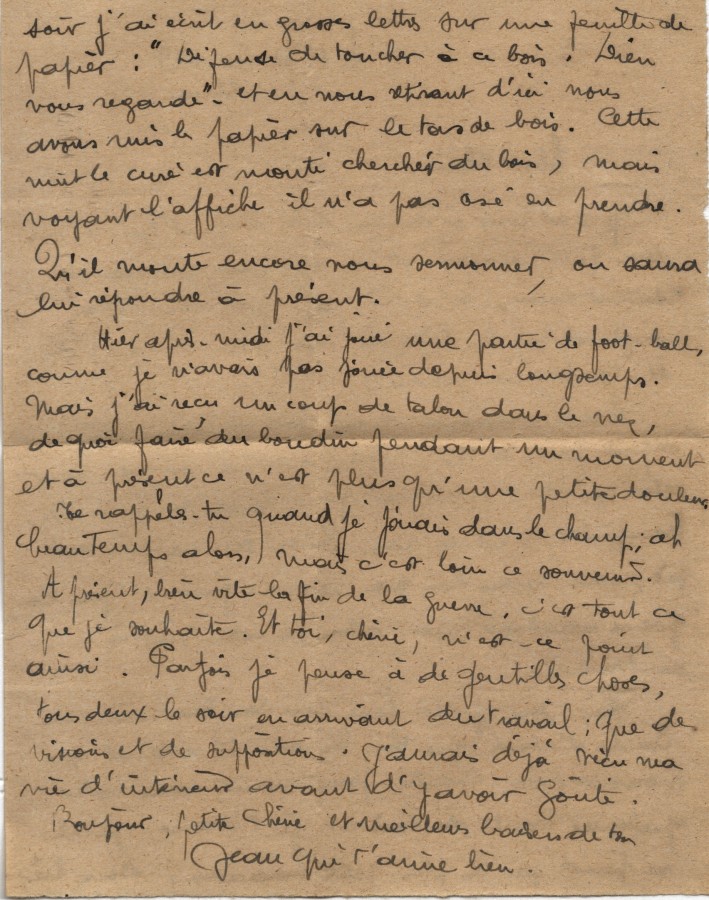 soir j'ai écrit en grosses lettres sur une feuille de
papier : "Défense de toucher à ce bois. Dieu
vous regarde". et en nous retirant d'ici nous
avons mis le papier sur le tas de bois. Cette
nuit le curé est monté chercher du bois, mais
voyant l'affiche il n'a pas osé en prendre.
Qu'il monte encore nous sermonner, on saura
lui répondre à présent.
Hier après-midi j'ai joué une partie de foot-ball,
comme je n'avais pas jouée depuis longtemps.
Mais j'ai reçu un coup de talon dans le nez,
de quoi faire du boudin pendant un moment
et à présent ce n'est plus qu'une petite douleur
Te rappeles-tu quand je jouais dans le champ; ah
beau temps alors, mais c'est loin ce souvenir.
A présent, bien vite la fin de la guerre, c'est tout ce
que je souhaite. Et toi, chérie, n'est-ce point
ainsi. Parfois je pense à de gentilles choses,
tous deux le soir en arrivant du travail; que de
visions et de suppositions. J'aurais déjà vécu ma
vie d'intérieur avant d'y avoir goûté.
Bonjour, petite Chérie et meilleurs baisers de ton
Jean qui t'aime bien.